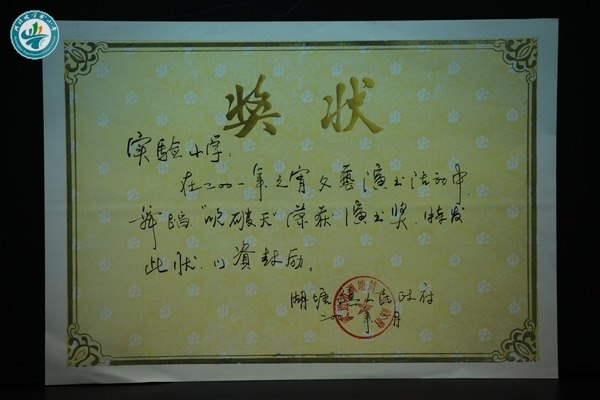 奖状
实验小学:
在二〇〇一年元宵文艺演出活动中,
舞蹈“吹破天”荣获演出奖.特发
此状.以资鼓励。
湖塘镇人民政府
二〇〇一年 月